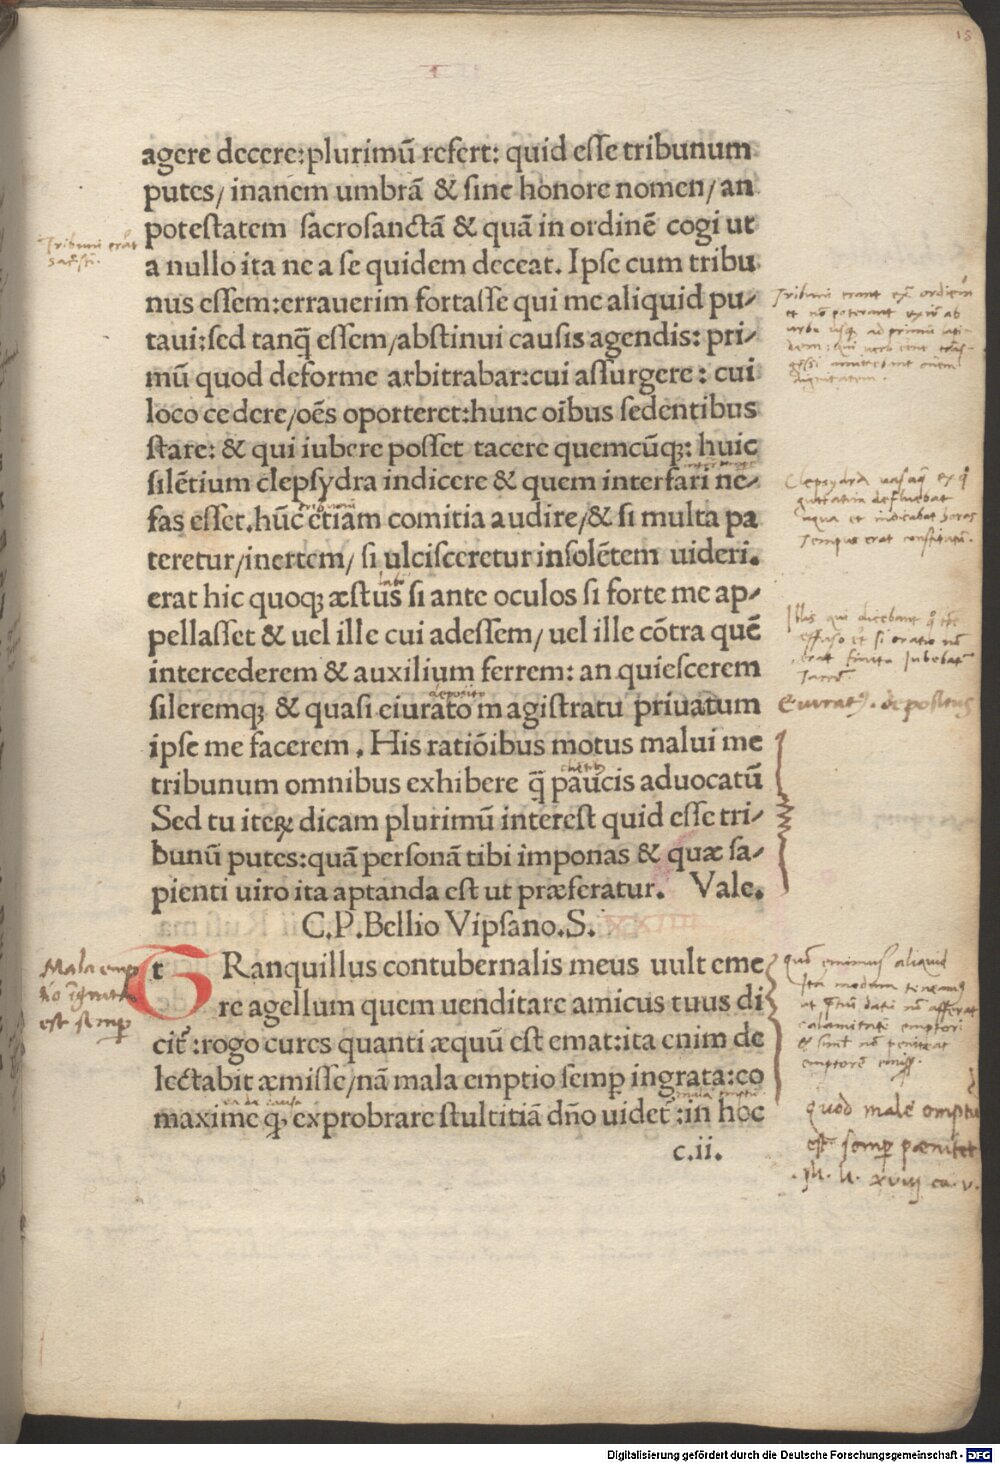 15
agere decere:plurimū refert: quid eſſe tribunum
putes/ inanem umbrā & ſine honore nomen/ an
poteſtatem ſacroſanctā & quā in ordinē cogi ut
a nullo ita ne a ſe quidem deceat. Ipſe cum tribu
nus eſſem:errauerim fortaſſe qui me aliquid pu-
taui:ſed tanq̄ eſſem/abſtinui cauſis agendis: pri-
mū quod deforme arbitrabar:cui aſſurgere: cui
loco cedere/oēs oporteret:hunc oībus ſedentibus
ſtare: & qui iubere poſſet tacere quemcūq;: huic
ſilētium clepſydra indicere & quem interfari ne-
fas eſſet.hūc etiam comitia audire/& ſi multa pa
teretur/inertem/ ſi ulciſceretur inſolētem uideri.
erat hic quoq; æſtus ſi ante oculos ſi forte me ap-
pellaſſet & uel ille cui adeſſem/ uel ille cōtra quē
intercederem & auxilium ferrem: an quieſcerem
deposito
ſileremq; & quaſi eiurato magiſtratu priuatum
ipſe me facerem. His ratiōibus motus malui me
tribunum omnibus exhibere q̄ paucis aduocatū
Sed tu iteꝝ dicam plurimū intereſt quid eſſe tri-
bunū putes:quā perſonā tibi imponas & quæ ſa-
pienti uiro ita aptanda eſt ut præferatur. Vale.
C.P.Bellio Vipſano.S.
G t Ranquillus contubernalis meus uult eme
re agellum quem uenditare amicus tuus di
cit̄:rogo cures quanti æquū eſt emat:ita enim de
lectabit æmiſſe/nā mala emptio ſemp̲ ingrata:eo
maxime q, exprobrare ſtultitiā dño uidet̄:in hoc
c.ii.
Tribuni erāt
Tribuni erant
Clepsydra
aqua et indicabat horas
Tempus erat
Illis qui dicebant
Eiurat9. depositus
Mala emp
est semp̲
aliquid
calamitati emptori
quod male emptū
est semp̲ pænitet
xviij ca. v.
Digitalisierung gefördert durch die Deutsche Forschungsgemeinschaft - DFG